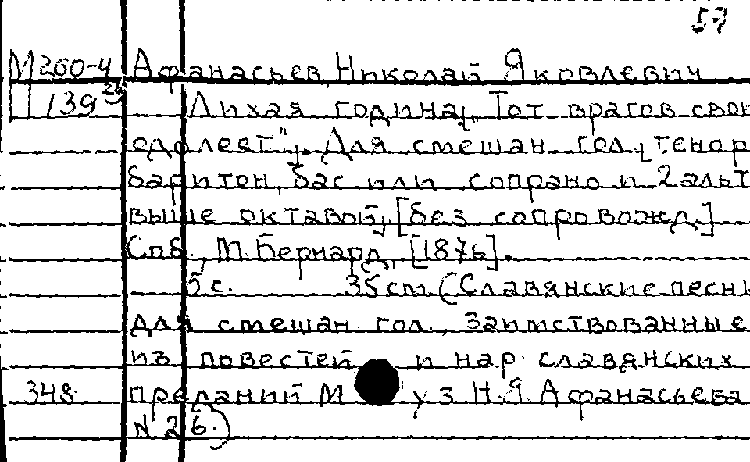 57
М 260-4 Афанасьев, Николай Яковлевич
139 Лихая година „Тот врагов свои
одолеет". Для смешан гол [тенор
баритон, бас или сопрано и 2 альт
выше октавой, [без сопровожд.]
Спб., М. Бернард, [1876].
5 с. 35 cm. (Славянские песни
для смешан гол., заимствованные
из повестей и нар. славянских
348 преданий М уз Н.Я. Афанасьева
N 26.)